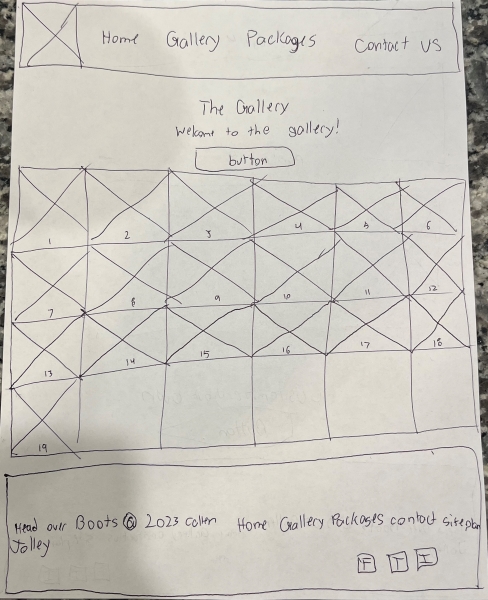 Home Gallery Packages Contact US
The Gallery
Welcome to the gallery!
button
1 2 3 4 5 6
7 8 9 10 11 12
13 14 15 16 17 18
19
Head over Boots © 2023 Collen Home Gallery Packages contact siteplan
Jolley
F T I